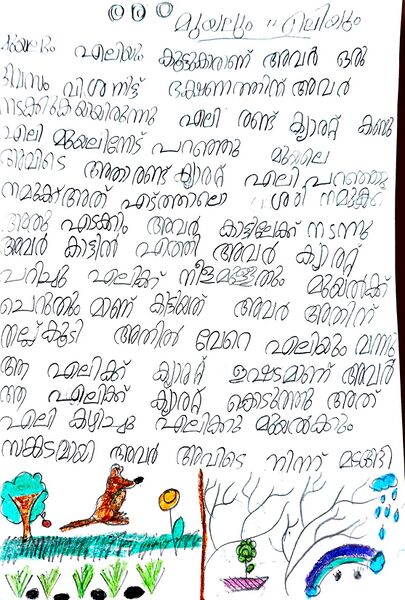 മുയലും എലിയും
മുയലും എലിയും കൂട്ടുകാരാണ് അവർ ഒരു
ദിവസം വിശന്നിട്ട് ഭക്ഷണത്തിന് അവർ
നടക്കുകയായിരുന്നു എലി രണ്ട് ക്യാരറ്റ് കണ്ടു
എലി മുയലിനോട് പറഞ്ഞു മുയലെ
അവിടെ അതാ രണ്ട് ക്യാരറ്റ് എലി പറഞ്ഞു
നമുക്ക് അത് എടുത്താലൊ ശരി നമുക്ക്
അതു എടക്കും അവർ കാട്ടിലേക്ക് നടന്നു
അവർ കാട്ടിൽ എത്തി അവർ ക്യാരറ്റ്
പറിച്ചു എലിക്ക് നീളമുള്ളതും മുയൽക്ക്
ചെറുതും മാണ് കിട്ടിയത് അവർ അതിന്
തല്ല് കൂടി അതിൽ വേറെ എലിയും വന്നു
ആ എലിക്ക് ക്യാരറ്റ് ഇഷടമാണ് അവർ
ആ എലിക്ക് ക്യാരറ്റ് കൊടുത്തു അത്
എലി കഴിച്ചു എലിക്കു മുയൽക്കും
സങ്കടമായി അവർ അവിടെ നിന്ന് മടങ്ങി